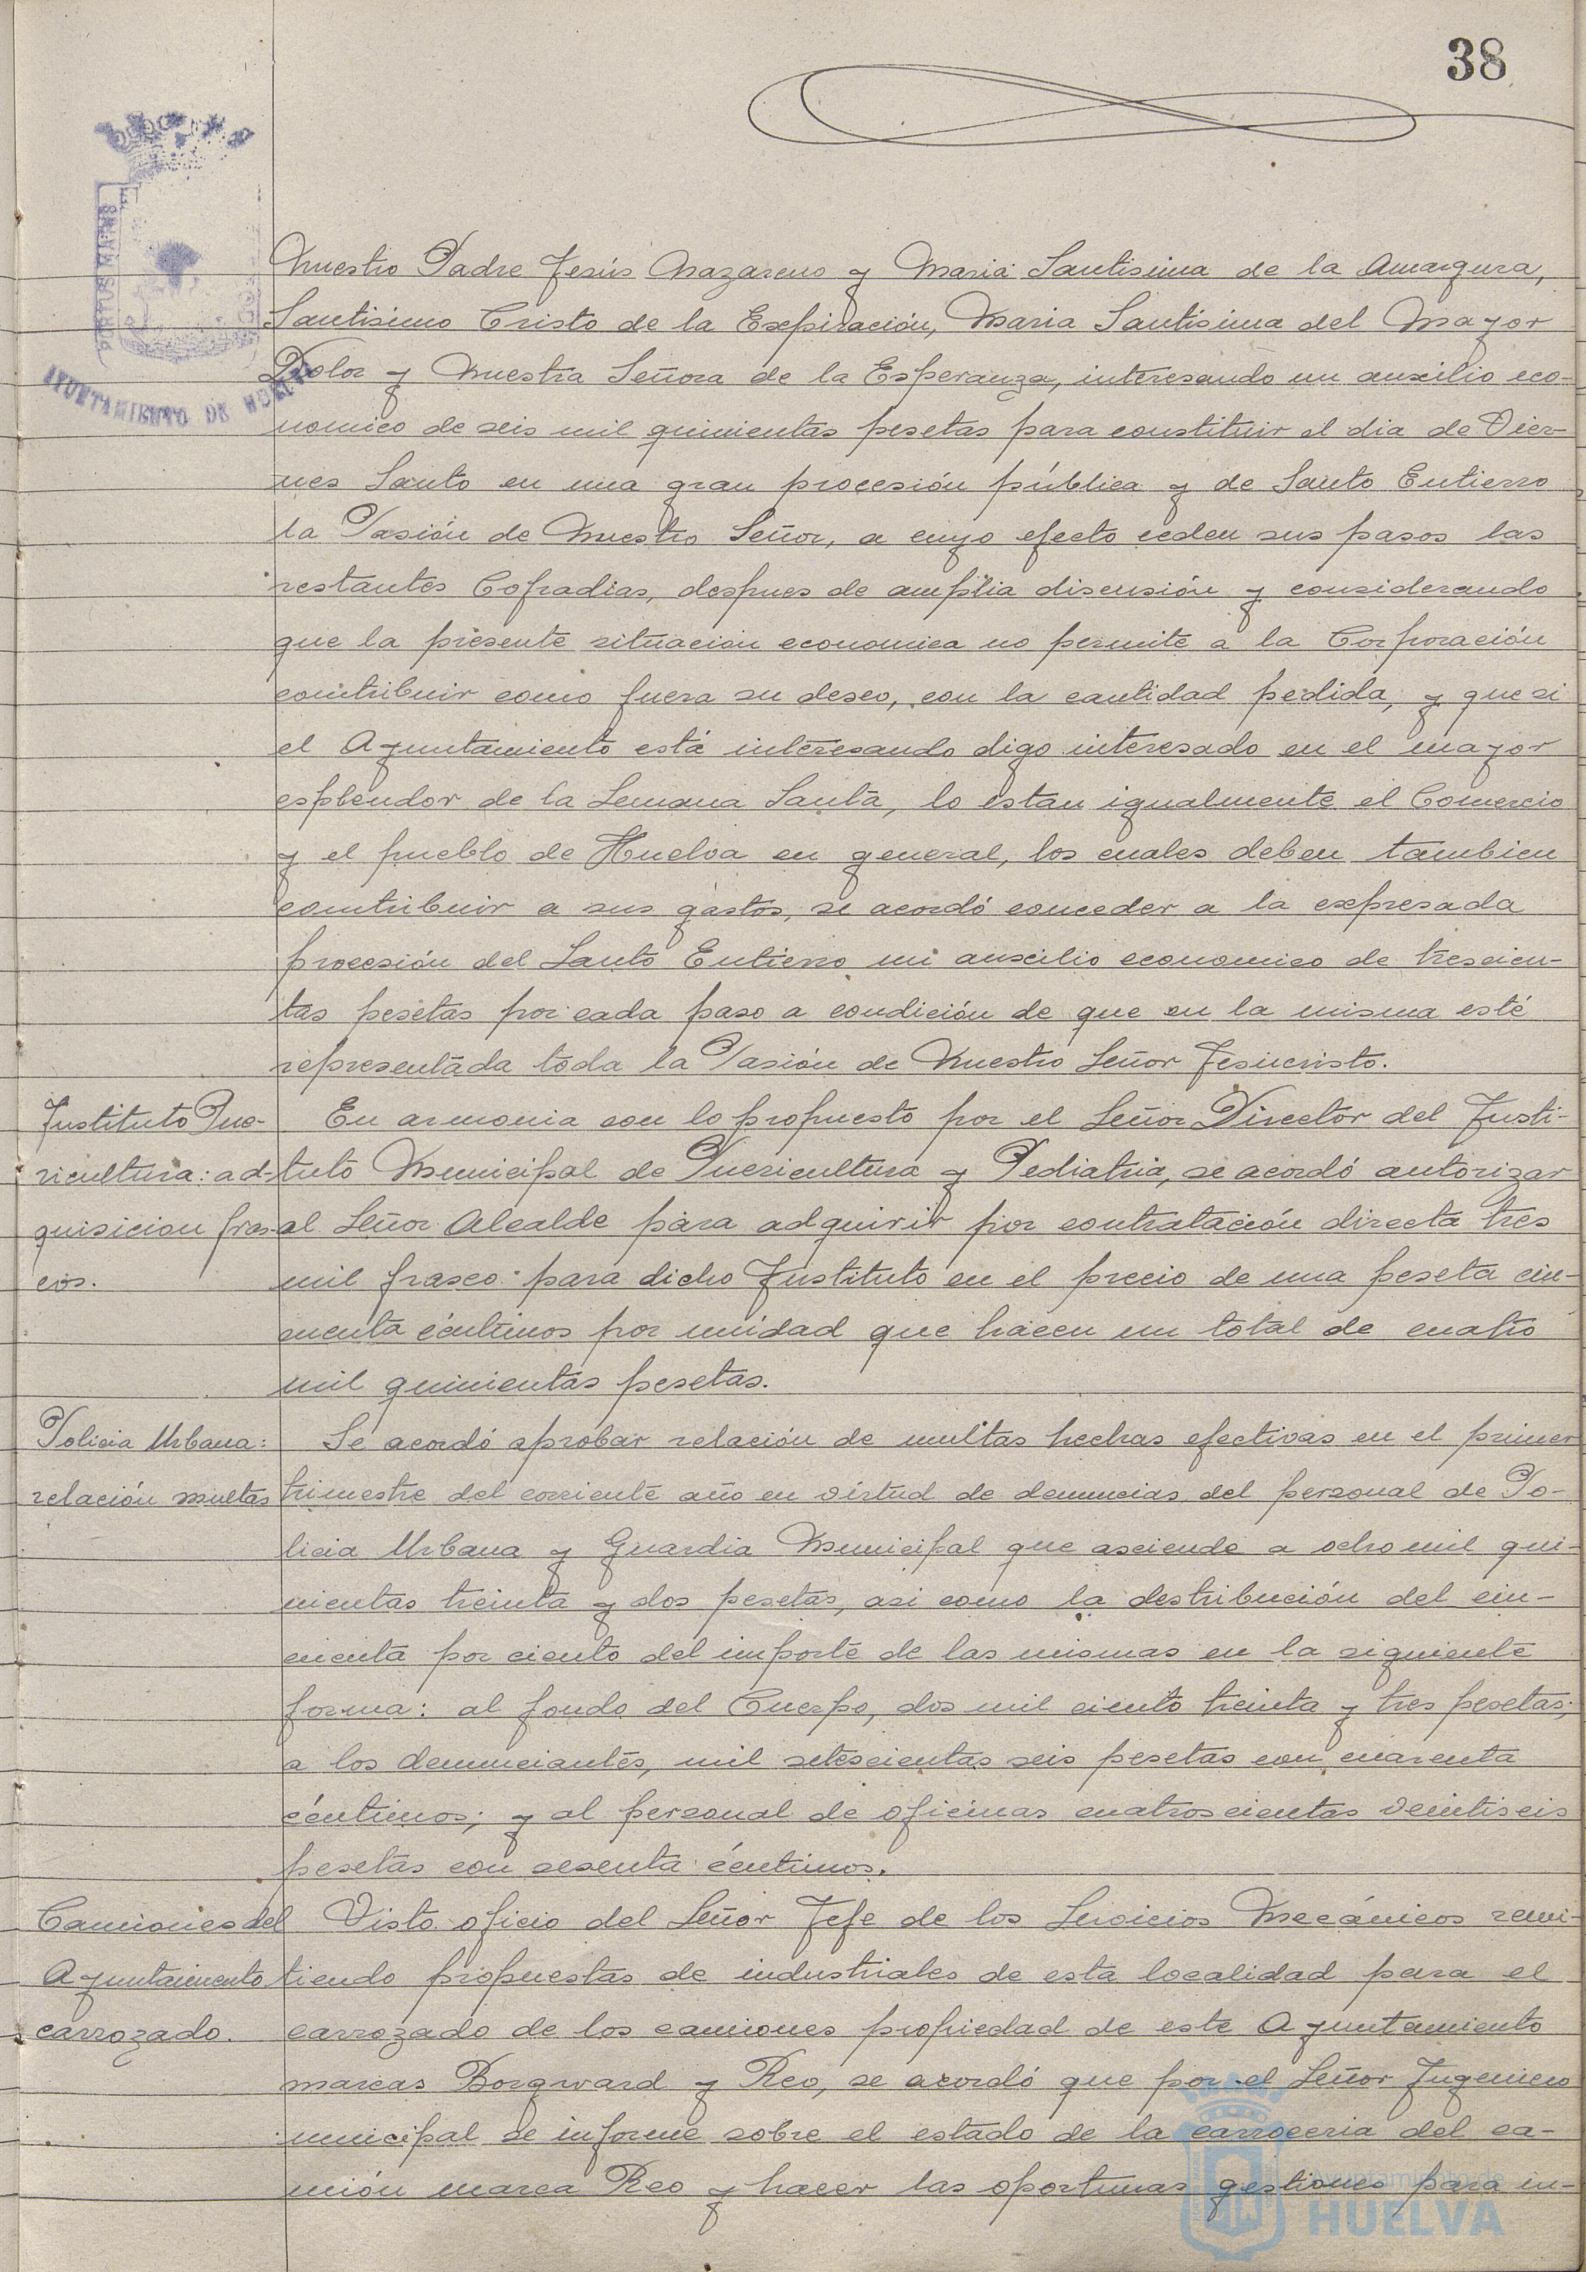 38
PORTUS MARIS
AYUNTAMIENTO DE HUELVA
Nuestro Padre Jesús Nazareno y Maria Santisima de la Amargura,
Santisimo Cristo de la Expiración, Maria Santisima del Mayor
Dolor y Nuestra Señora de la Esperanza, interesando un auxilio eco-
nomico de seis mil quinientas pesetas para constituir el dia de Vier-
nes Santo en una gran procesión pública y de Santo Entierro
la Pasión de Nuestro Señor, a cuyo efecto ceden sus pasos las
restantes Cofradias, despues de amplia discusión y considerando
que la presente situacion economica no permite a la Corporación
contribuir como fuera su deseo, con la cantidad pedida, y que si
el Ayuntamiento está interesando digo interesado en el mayor
esplendor de la Semana Santa, lo estan igualmente el Comercio
y el pueblo de Huelva en general, los cuales deben tambien
contribuir a sus gastos, se acordó conceder a la expresada
procesión del Santo Entierro un auxilio economico de trescien-
tas pesetas por cada paso a condición de que en la misma esté
representada toda la Pasión de Nuestro Señor Jesucristo.
Instituto Pue-
ricultura: ad-
quisicion fras-
cos.
En armonia con lo propuesto por el Señor Director del Insti-
tuto Municipal de Puericultura y Pediatria, se acordó autorizar
al Señor Alcalde para adquirir por contratación directa tres
mil frasco para dicho Instituto en el precio de una peseta cin-
cuenta céntimos por unidad que hacen un total de cuatro
mil quinientas pesetas.
Policia Urbana:
relación multas
Se acordó aprobar relación de multas hechas efectivas en el primer
trimestre del corriente año en virtud de denuncias del personal de Po-
licia Urbana y Guardia Municipal que asciende a ocho mil qui-
nientas treinta y dos pesetas, asi como la destribución del cin-
cuenta por ciento del importe de las mismas en la siguiente
forma: al fondo del Cuerpo, dos mil ciento treinta y tres pesetas;
a los denunciantes, mil setescientas seis pesetas con cuarenta
céntimos; y al personal de oficinas cuatroscientas veintiseis
pesetas con sesenta céntimos.
Camiones del
Ayuntamiento
carrozado.
Visto oficio del Señor Jefe de los Servicios Mecánicos remi-
tiendo propuestas de industriales de esta localidad para el
carrozado de los camiones propiedad de este Ayuntamiento
marcas Borgward y Reo, se acordó que por el Señor Ingeniero
municipal se informe sobre el estado de la carroceria del ca-
mión marca Reo y hacer las oportunas gestiones para in-
Ayuntamiento de
HUELVA